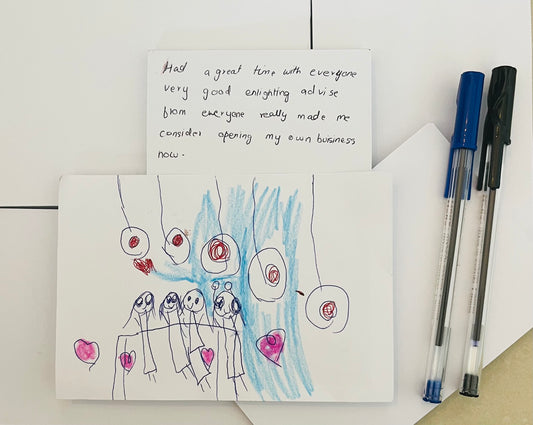 Had a great time with everyone
very good enlighting advise
from everyone really made me
consider opening my own buisiness
now.